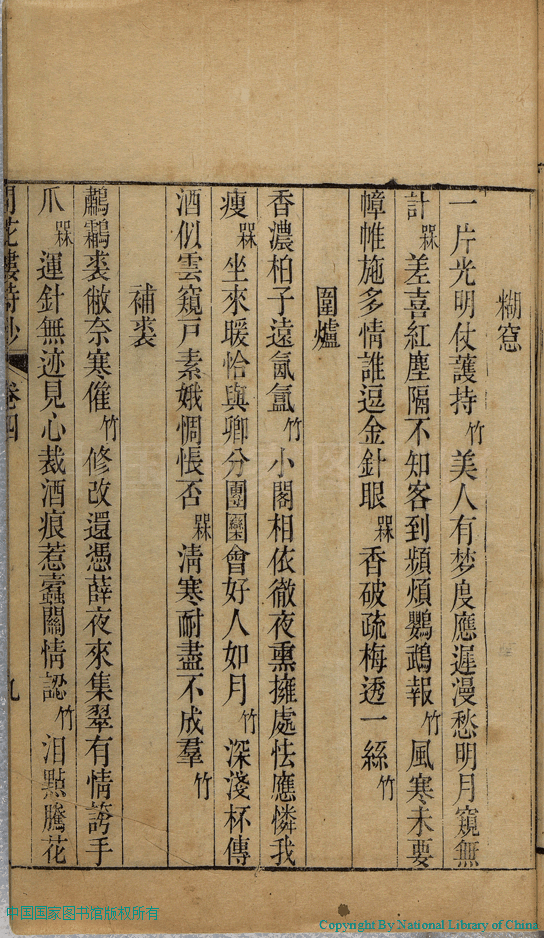 糊窓
一片光明仗護持 竹 美人有梦度應遲漫愁明月窺無
計 槑 差喜紅塵隔不知客到頻煩鸚鵡報 竹 風寒未要
幛帷施多情誰逗金針眼 槑 香破疏梅透一絲 竹
圍爐
香濃柏子遠氤氳 竹 小閣相依徹夜熏擁處怯應憐我
瘦 槑 坐來暖恰與卿分團欒會好人如月 竹 深淺杯傳
酒似雲窺戸素娥惆悵否 槑 淸寒耐盡不成羣 竹
補裘
鷫鸘裘敝奈寒催 竹 修改還憑薛夜來集翠有情誇手
爪 槑 運針無迹見心裁酒痕惹蠹關情認 竹 泪點騰花
花樓詩抄 卷四 九
中国国家图书馆版权所有
Copyright By National Library of China